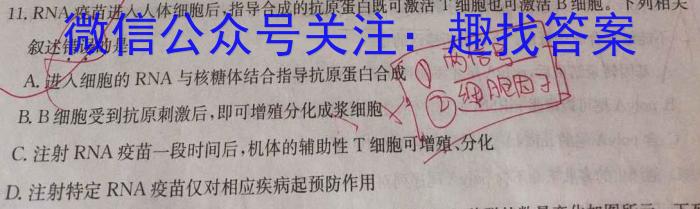 11. RNA 疫苗进入人体细胞后,指导合成的抗原蛋白既可激活 T 细胞也可激活 B 细胞。下列相关
微信公众号关注：趣找答案
叙述错误的是
A. 进入细胞的 RNA 与核糖体结合指导抗原蛋白合成
① 两信号
② 细胞因子
B. B 细胞受到抗原刺激后,即可增殖分化成浆细胞
C. 注射 RNA 疫苗一段时间后,机体的辅助性 T 细胞可增殖、分化
D. 注射特定 RNA 疫苗仅对相应疾病起预防作用